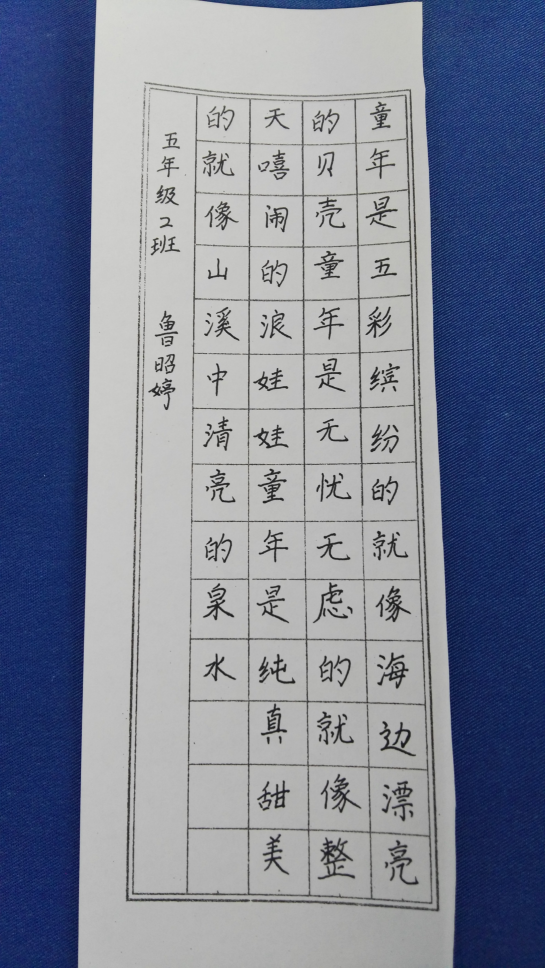 童年是五彩缤纷的就像海边漂亮
的贝壳童年是无忧无虑的就像整
天嘻闹的浪娃娃童年是纯真甜美
的就像山溪中清亮的泉水
五年级2班 鲁昭婷